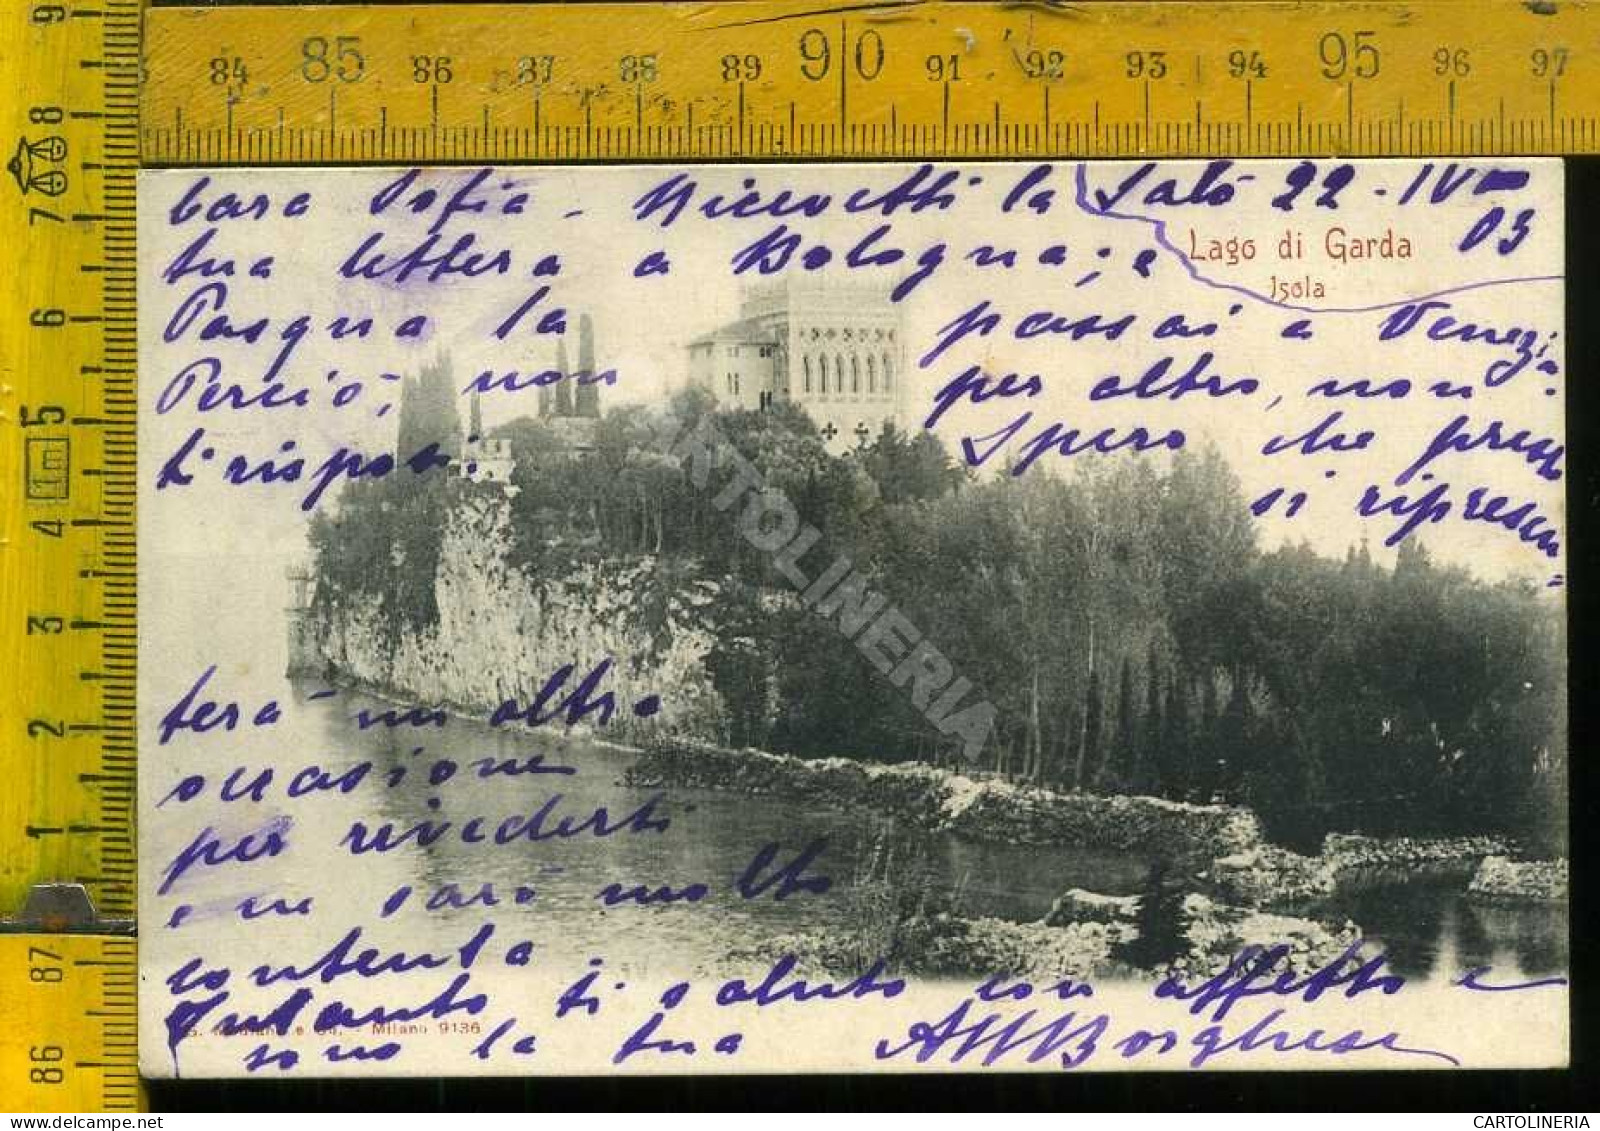 84 85 86 87 88 89 90 91 92 93 94 95 96 97
9
8
7
6
5
1m
4
3
2
1
87
86
Cara Sofia - Ricevetti la
Salò 22-IV 03
tua lettera a Bologna; e
Lago di Garda
Isola
Pasqua la passai a Venezia.
Perciò, non per altro, non
ti risposi. Spero che presto
si ripresen-
terà un altra
occasione
per rivederti
e ne sarò molto
contenta.
Intanto ti saluto con affetto e
e Co. - Milano 9136
sono la tua Borghese
CARTOLINERIA
CARTOLINERIA